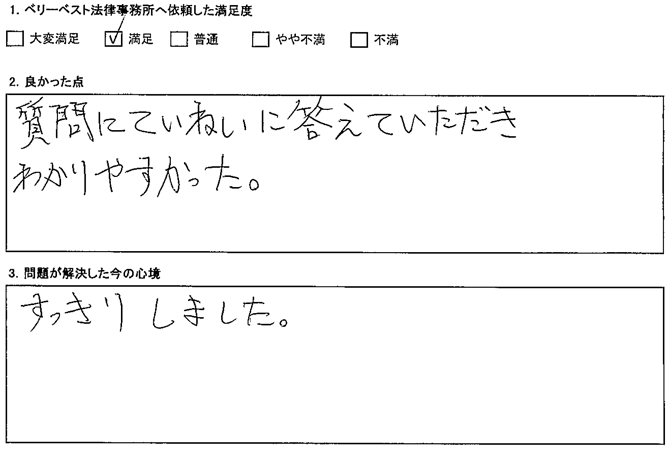 1. ベリーベスト法律事務所へ依頼した満足度
□ 大変満足 ☑ 満足 □ 普通 □ やや不満 □ 不満
2. 良かった点
質問にていねいに答えていただき
わかりやすかった。
3. 問題が解決した今の心境
すっきりしました。